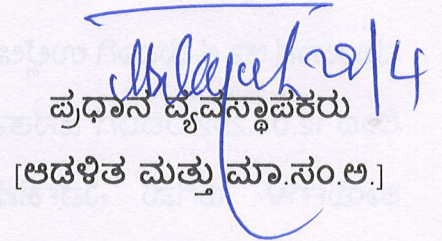 28/4
ಪ್ರಧಾನ ವ್ಯವಸ್ಥಾಪಕರು
[ಆಡಳಿತ ಮತ್ತು ಮಾ.ಸಂ.ಅ.]